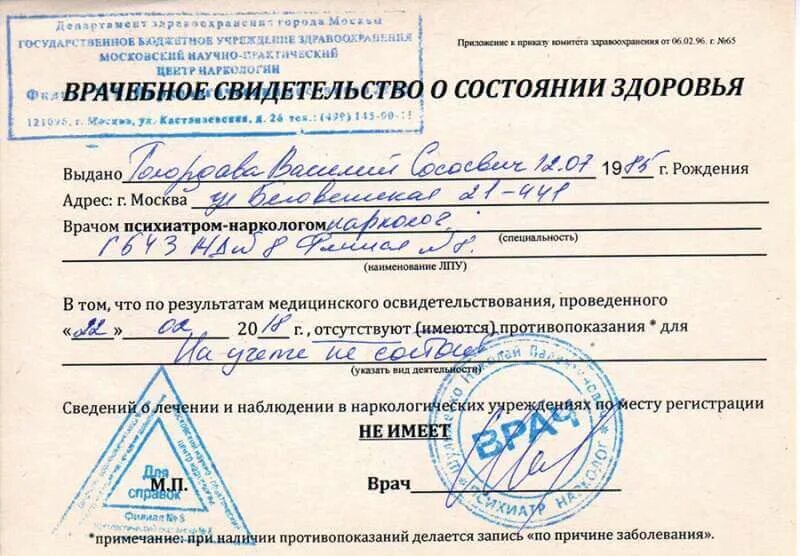 Департамент здравоохранения города Москвы
ГОСУДАРСТВЕННОЕ БЮДЖЕТНОЕ УЧРЕЖДЕНИЕ ЗДРАВООХРАНЕНИЯ
МОСКОВСКИЙ НАУЧНО-ПРАКТИЧЕСКИЙ
ЦЕНТР НАРКОЛОГИИ
121096, г. Москва, ул. Кастанаевская, д. 26 тел.: (499) 145-00-
Приложение к приказу комитета здравоохранения от 06.02.96. г. №65
ВРАЧЕБНОЕ СВИДЕТЕЛЬСТВО О СОСТОЯНИИ ЗДОРОВЬЯ
Выдано Василий 12.07 1985 г. Рождения
Адрес: г. Москва ул 21-441
Врачом психиатром-наркологом нарколог
(специальность)
ГБУЗ Филиал №8.
(наименование ЛПУ)
В том, что по результатам медицинского освидетельствования, проведенного
«22» 02 2018 г., отсутствуют (имеются) противопоказания * для
На учете не состоит
(указать вид деятельности)
Сведений о лечении и наблюдении в наркологических учреждениях по месту регистрации
НЕ ИМЕЕТ
М.П. Врач
Для
справок
ВРАЧ
ПСИХИАТР НАРКОЛОГ
*примечание: при наличии противопоказаний делается запись «по причине заболевания».